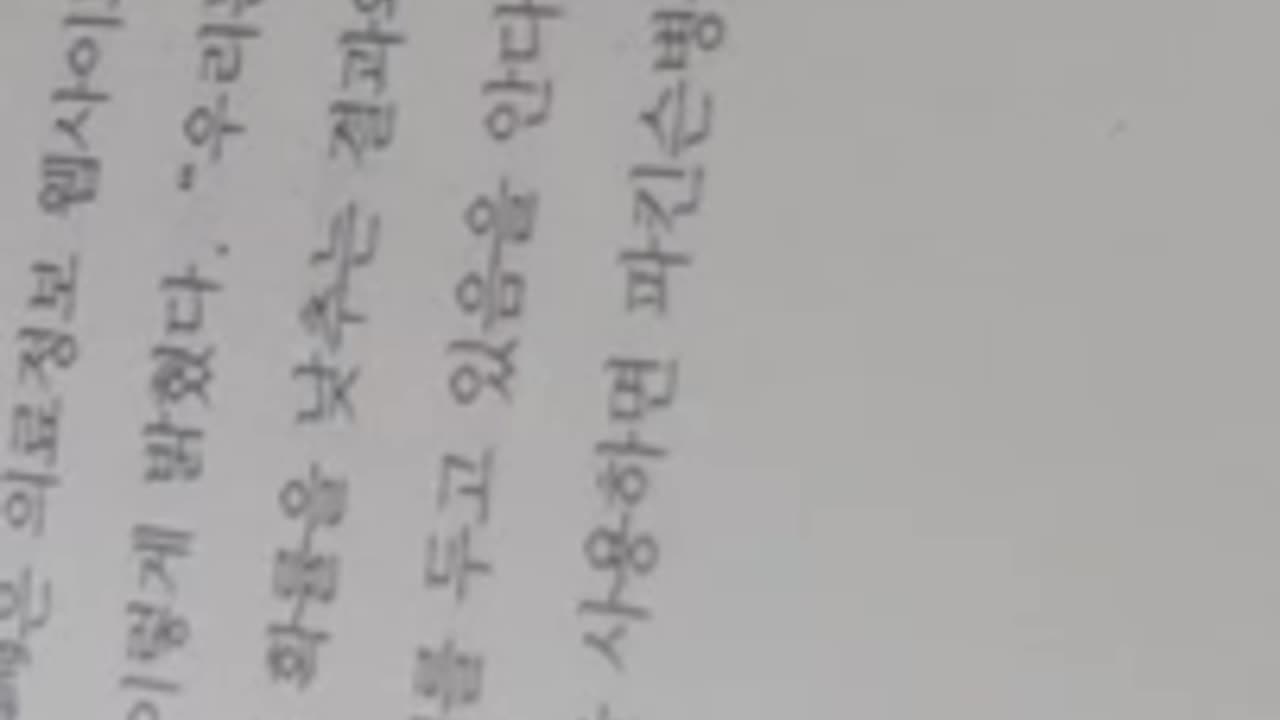 은 의료정보 웹사이
이렇게 밝혔다. “우리
화를을 낮추는 결과
를 두고 있음을 안다
사용하면 파킨슨병